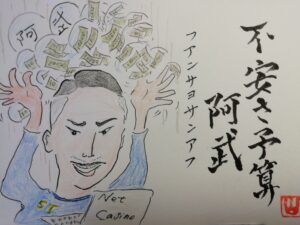 不安さ予算
阿武
フアンサヨサンアフ
阿
武
ST
Net
Casino